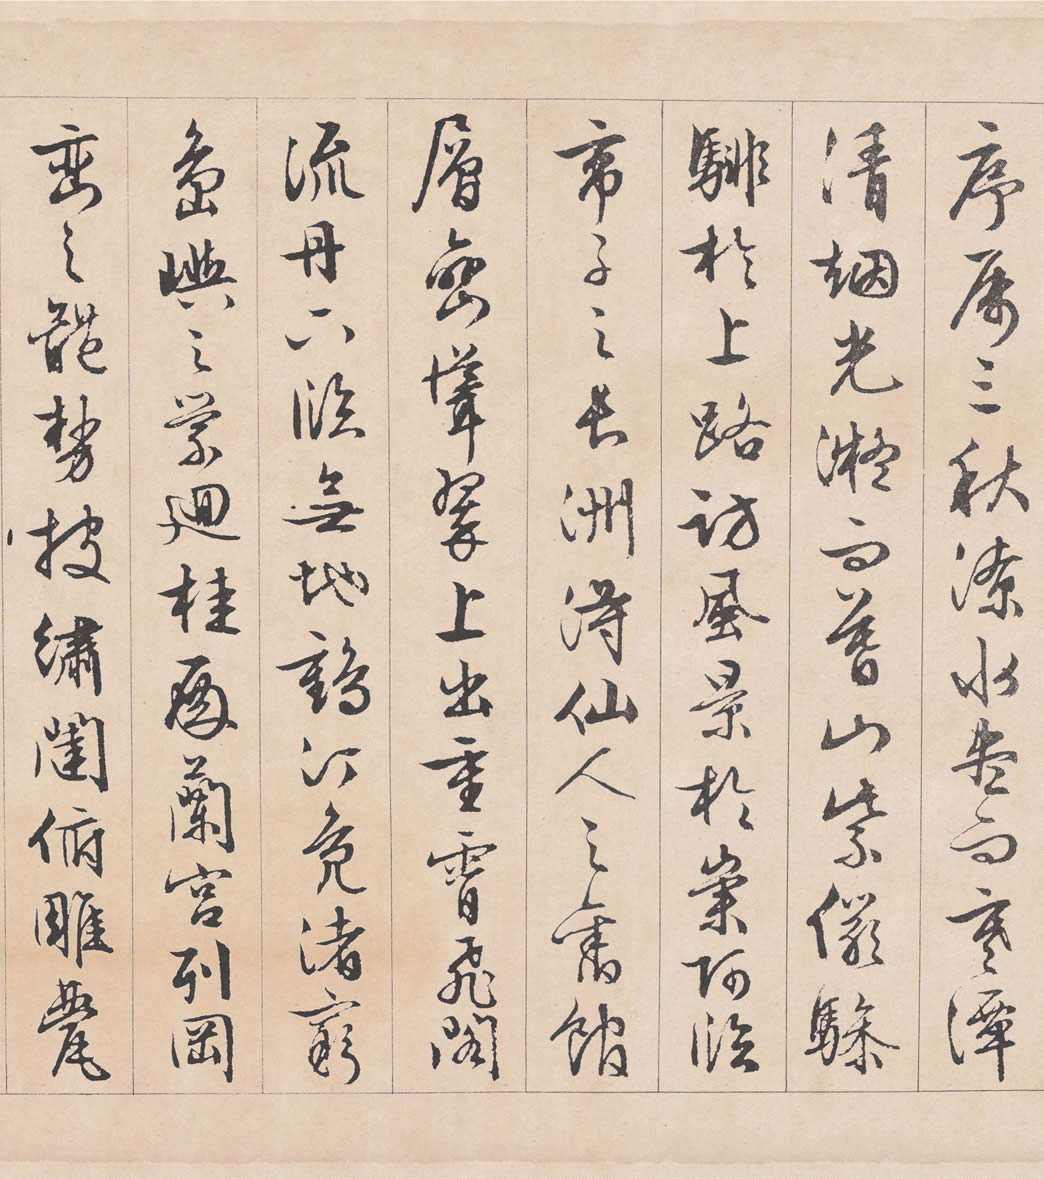 序屬三秋潦水盡而寒潭
清烟光凝而暮山紫儼驂
騑於上路訪風景於崇阿臨
帝子之長洲得仙人之舊館
層巒聳翠上出重霄飛閣
流丹下臨無地鶴汀鳧渚窮
島嶼之縈迴桂殿蘭宮列岡
巒之體勢披繡闥俯雕甍